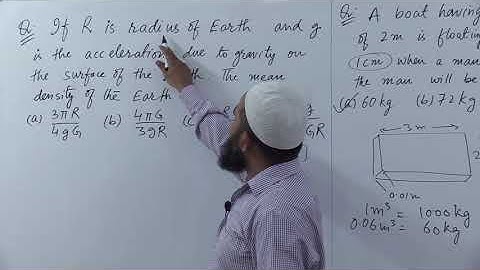 Q: If R is radius of Earth and g
is the acceleration due to gravity on
the surface of the Earth. The mean
density of the Earth
(a) 3πR/4gG (b) 4πG/3gR (c)
Q: A boat having
of 2m is floating
(1cm) when a man
the man will be
(a) 60kg (b) 72kg
3m
2
0.01m
1m³ = 1000kg
0.06m³ = 60kg